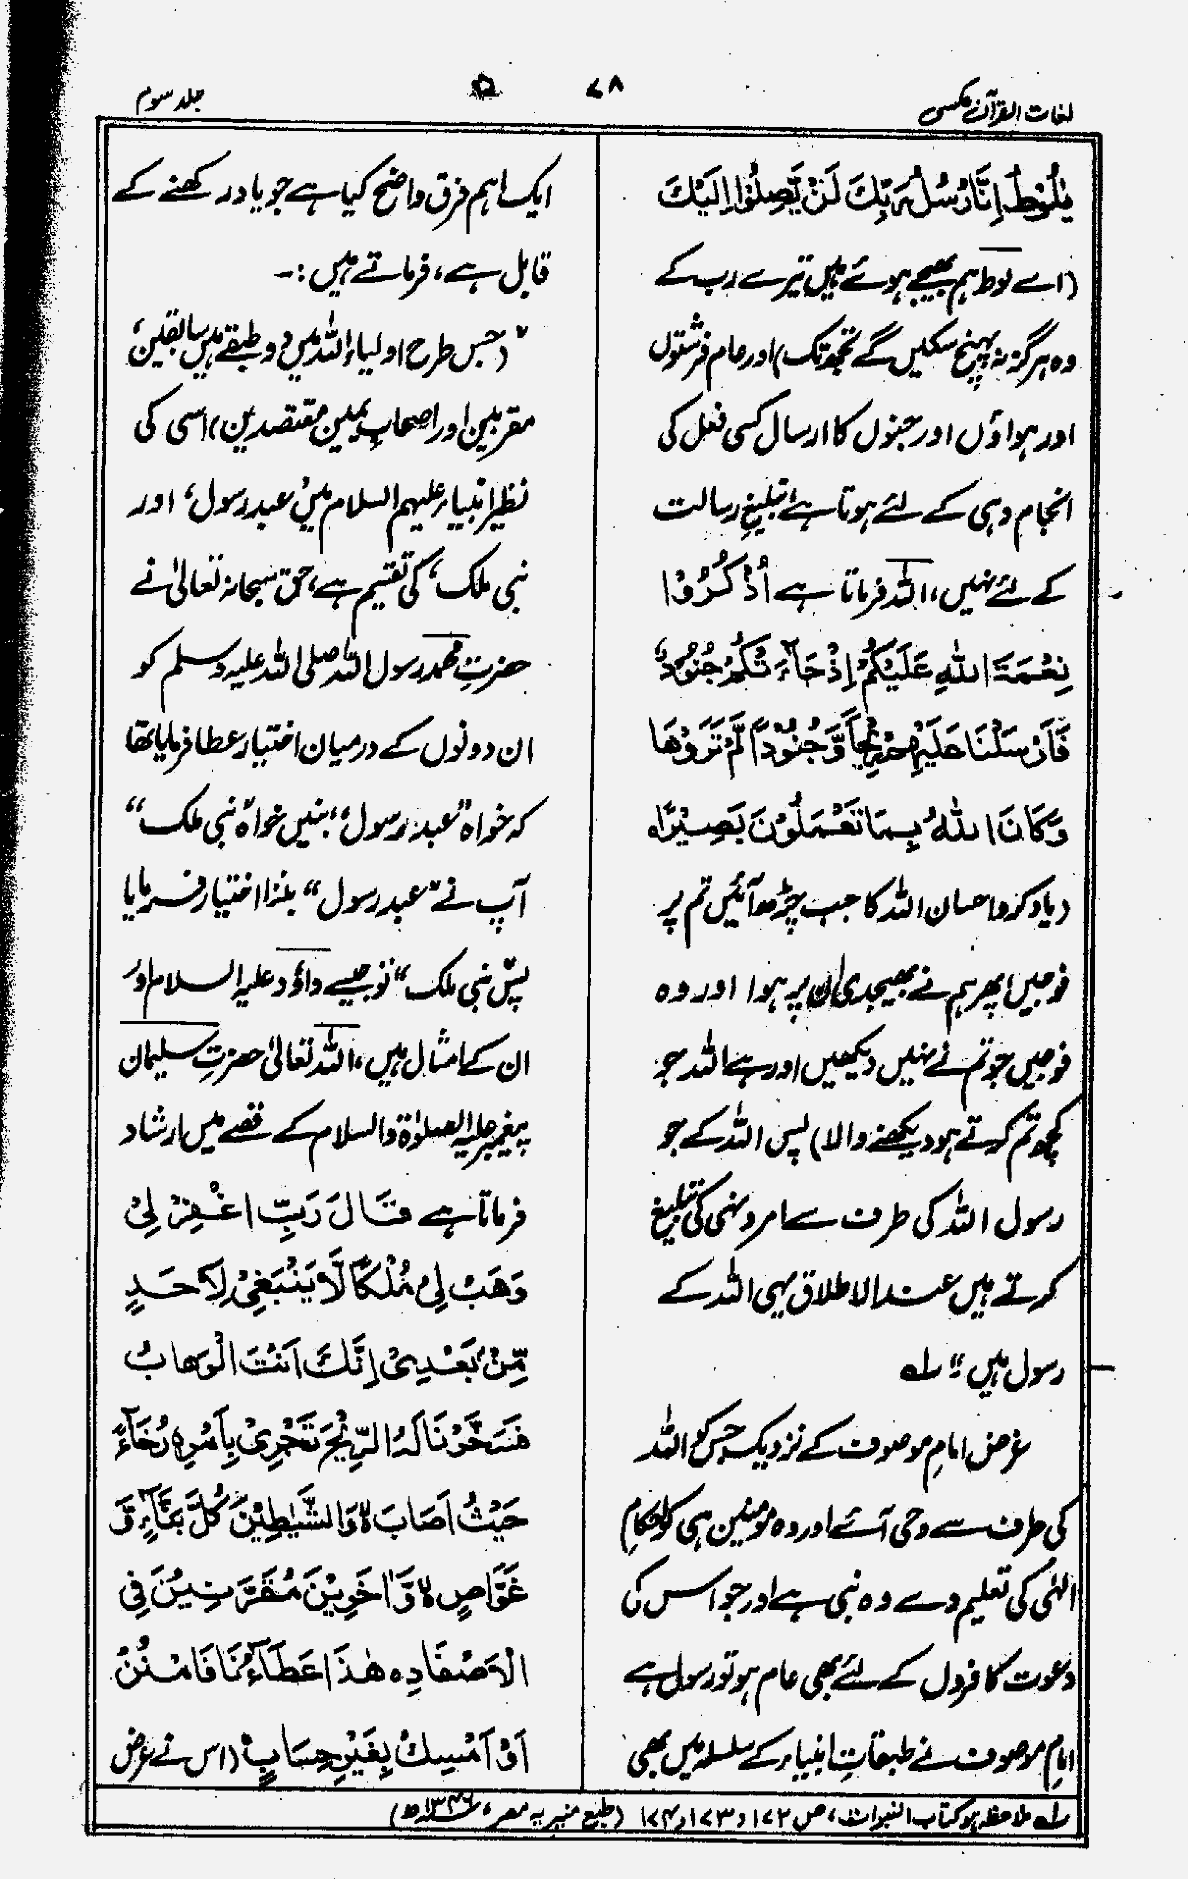 لغات القرآن عکسی
۷۸
ن
جلد سوم
يٰلُوْطُ اِنَّا رُسُلُ رَبِّكَ لَنْ يَّصِلُوْا اِلَيْكَ
(اے لوط ہم بھیجے ہوئے ہیں تیرے رب کے
وہ ہرگز نہ پہنچ سکیں گے تجھ تک) اور عام فرشتوں
اور ہواؤں اور جنوں کا ارسال کسی فعل کی
انجام دہی کے لئے ہوتا ہے تبلیغِ رسالت
کے لئے نہیں، اللہ فرماتا ہے اُذْكُرُوْا
نِعْمَةَ اللهِ عَلَيْكُمْ اِذْ جَآءَتْكُمْ جُنُوْدٌ
فَاَرْسَلْنَا عَلَيْهِمْ رِيْحًا وَّجُنُوْدًا لَّمْ تَرَوْهَا
وَكَانَ اللهُ بِمَا تَعْمَلُوْنَ بَصِيْرًا ه
(یاد کرو احسان اللہ کا جب چڑھ آئیں تم پر
فوجیں پھر ہم نے بھیجدی ان پر ہوا اور وہ
فوجیں جو تم نے نہیں دیکھیں اور ہے اللہ جو
کچھ تم کرتے ہو دیکھنے والا) پس اللہ کے جو
رسول اللہ کی طرف سے امر و نہی کی تبلیغ
کرتے ہیں عند الاطلاق یہی اللہ کے
رسول ہیں“ لہ
غرض امامِ موصوف کے نزدیک جس کو اللہ
کی طرف سے وحی آئے اور وہ مومنین ہی کو احکامِ
الٰہی کی تعلیم دے وہ نبی ہے اور جو اس کی
دعوت کافروں کے لئے بھی عام ہو تو رسول ہے
امامِ موصوف نے طبقاتِ انبیاء کے سلسلہ میں بھی
ایک اہم فرق واضح کیا ہے جو یاد رکھنے کے
قابل ہے، فرماتے ہیں :-
”(جس طرح اولیاء اللہ میں دو طبقے ہیں سابقین،
مقربین اور اصحابِ یمین مقتصدین) اسی کی
نظیر انبیاء علیہم السلام میں عبد رسول، اور
نبی ملک، کی تقسیم ہے، حق سبحانہ تعالیٰ نے
حضرتِ محمد رسول اللہ صلی اللہ علیہ وسلم کو
ان دونوں کے درمیان اختیار عطا فرمایا تھا
کہ خواہ ”عبد رسول“ بنیں خواہ ”نبی ملک“
آپ نے ”عبد رسول“ بننا اختیار فرمایا
پس نبی ملک“ تو جیسے داؤد علیہ السلام اور
ان کے امثال ہیں، اللہ تعالیٰ حضرتِ سلیمان
پیغمبر علیہ الصلوٰۃ والسلام کے قصے میں ارشاد
فرماتا ہے قَالَ رَبِّ اغْفِرْ لِيْ
وَهَبْ لِيْ مُلْكًا لَّا يَنْبَغِيْ لِاَحَدٍ
مِّنْ بَعْدِيْ اِنَّكَ اَنْتَ الْوَهَّابُ
فَسَخَّرْنَا لَهُ الرِّيْحَ تَجْرِيْ بِاَمْرِهٖ رُخَآءً
حَيْثُ اَصَابَ ه وَالشَّيٰطِيْنَ كُلَّ بَنَّآءٍ وَّ
غَوَّاصٍ ه وَّاٰخَرِيْنَ مُقَرَّنِيْنَ فِي
الْاَصْفَادِ ه هٰذَا عَطَآؤُنَا فَامْنُنْ
اَوْ اَمْسِكْ بِغَيْرِ حِسَابٍ (اس نے عرض
لہ ملاحظہ ہو کتاب النبوات، ص ۱۷۲ و ۱۷۳ و ۱۷۴ (طبع منیریہ مصر، ۱۳۴۶ھ)